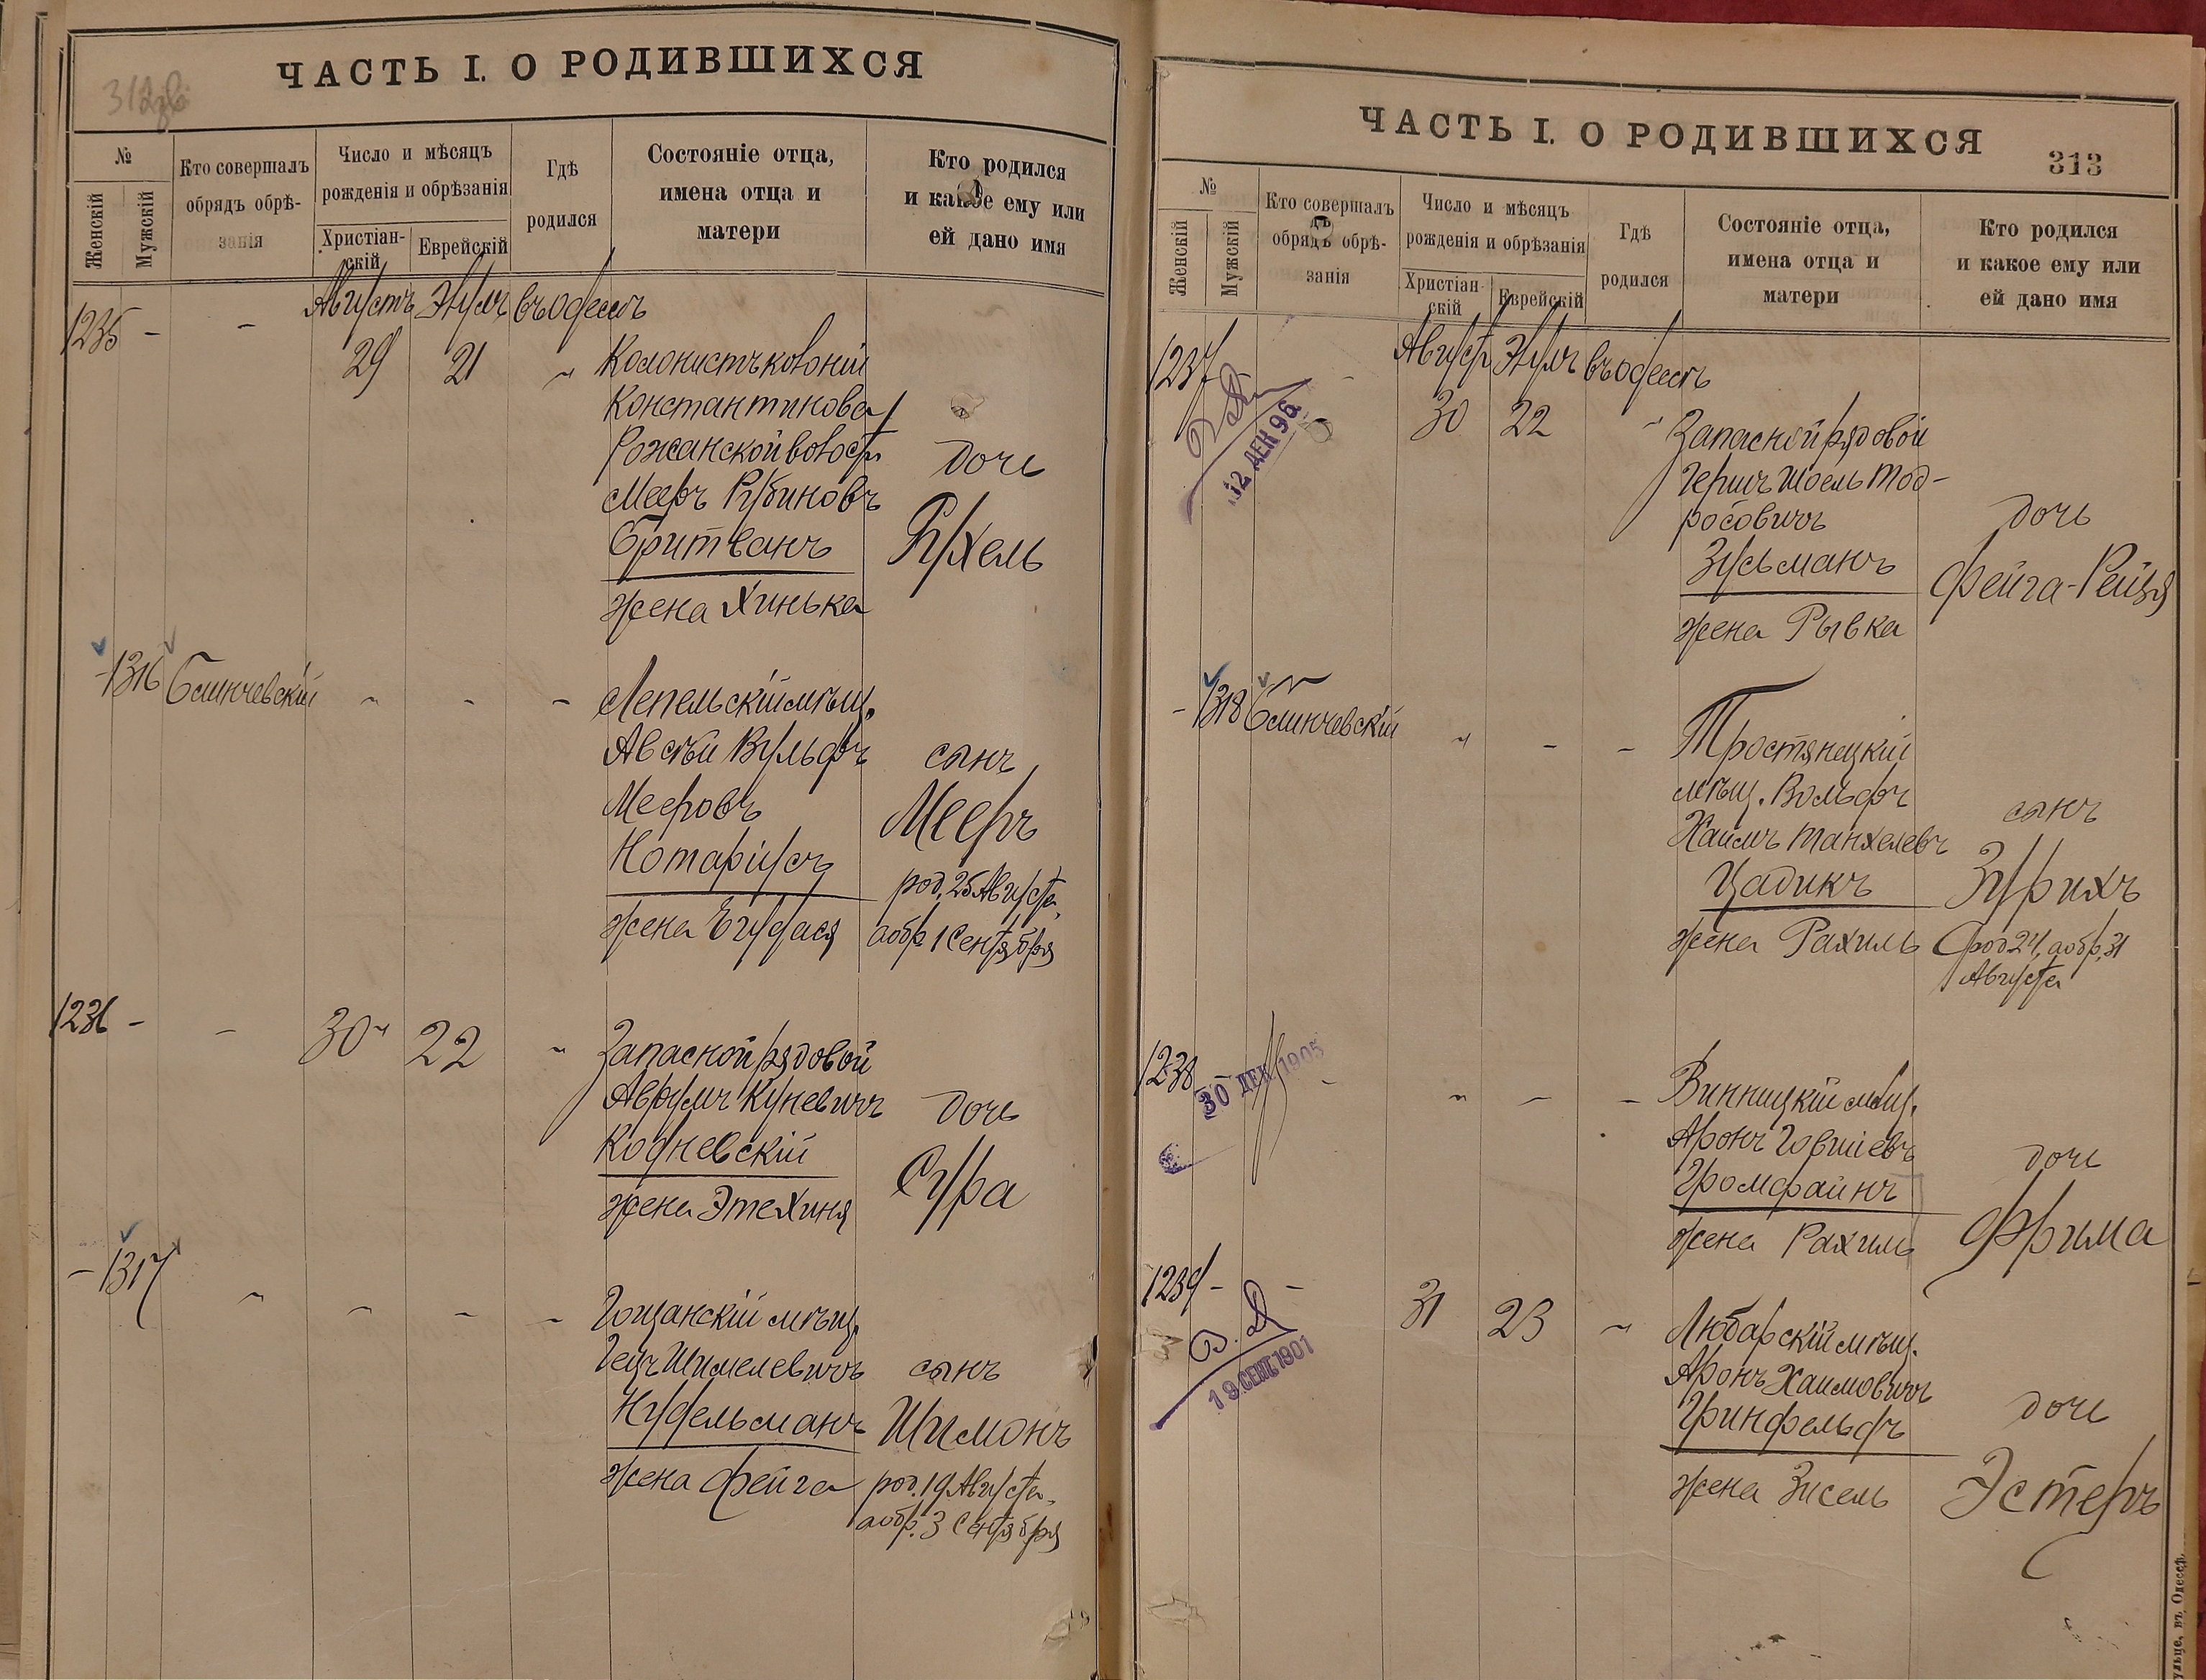 ЧАСТЬ I. О РОДИВШИХСЯ
№
Женскій
Мужскій
Кто совершалъ
обрядъ обрѣ-
занія
Число и мѣсяцъ
рожденія и обрѣзанія
Христіан-
скій
Еврейскій
Гдѣ
родился
Состояніе отца,
имена отца и
матери
Кто родился
и какое ему или
ей дано имя
Августъ Элулъ въ Одессѣ
1235 - -
29 21 "
Колонистъ колоніи
Константиновa
Рожанской волости
Мееръ Рубиновъ
Бритванъ
жена Хинька
дочь
Рухель
-1316 Блинчевскій " - -
Лепельскій мѣщ.
Авсѣй Вульфъ
Мееровъ
Нотаріусъ
жена
сынъ
Мееръ
род. 25 Августа,
а обр. 1 Сентября
1236 - -
30 " 22 "
Запасной рядовой
Аврумъ Куневичъ
Коднѣвскій
жена Этехиня
дочь
Сура
-1317 " - - -
Гощанскій мѣщ.
Гецъ Шимелевичъ
Нудельманъ
жена Фейга
сынъ
Шимонъ
род. 19 Августа,
а обр. 3 Сентября
ЧАСТЬ I. О РОДИВШИХСЯ
313
№
Женскій
Мужскій
Кто совершалъ
обрядъ обрѣ-
занія
Число и мѣсяцъ
рожденія и обрѣзанія
Христіан-
скій
Еврейскій
Гдѣ
родился
Состояніе отца,
имена отца и
матери
Кто родился
и какое ему или
ей дано имя
Август Элулъ въ Одессѣ
1237 - -
12 ДЕК 96
30 22 "
Запасной рядовой
Гершъ Шоель Тод-
росовичъ
Зусьманъ
жена Рывка
дочь
Фейга-Рейзя
-1318 Блинчевскій " - -
Тростянецкій
мѣщ. Вольфъ
Хаимъ Танхелевъ
Цадикъ
жена Рахиль
сынъ
Зурихъ
род 24, а обр. 31
Августа
1238 -
30 ДЕК 1905
" - -
Винницкій мѣщ.
Аронъ Горшіевъ
Громфайнъ
жена Рахиль
дочь
Фрима
1239 - -
В. Д
19 СЕНТ 1901
31 23 "
Любарскій мѣщ.
Аронъ Хаимовичъ
Гринфельдъ
жена Зисель
дочь
Эстеръ
ульце, въ Одессѣ.